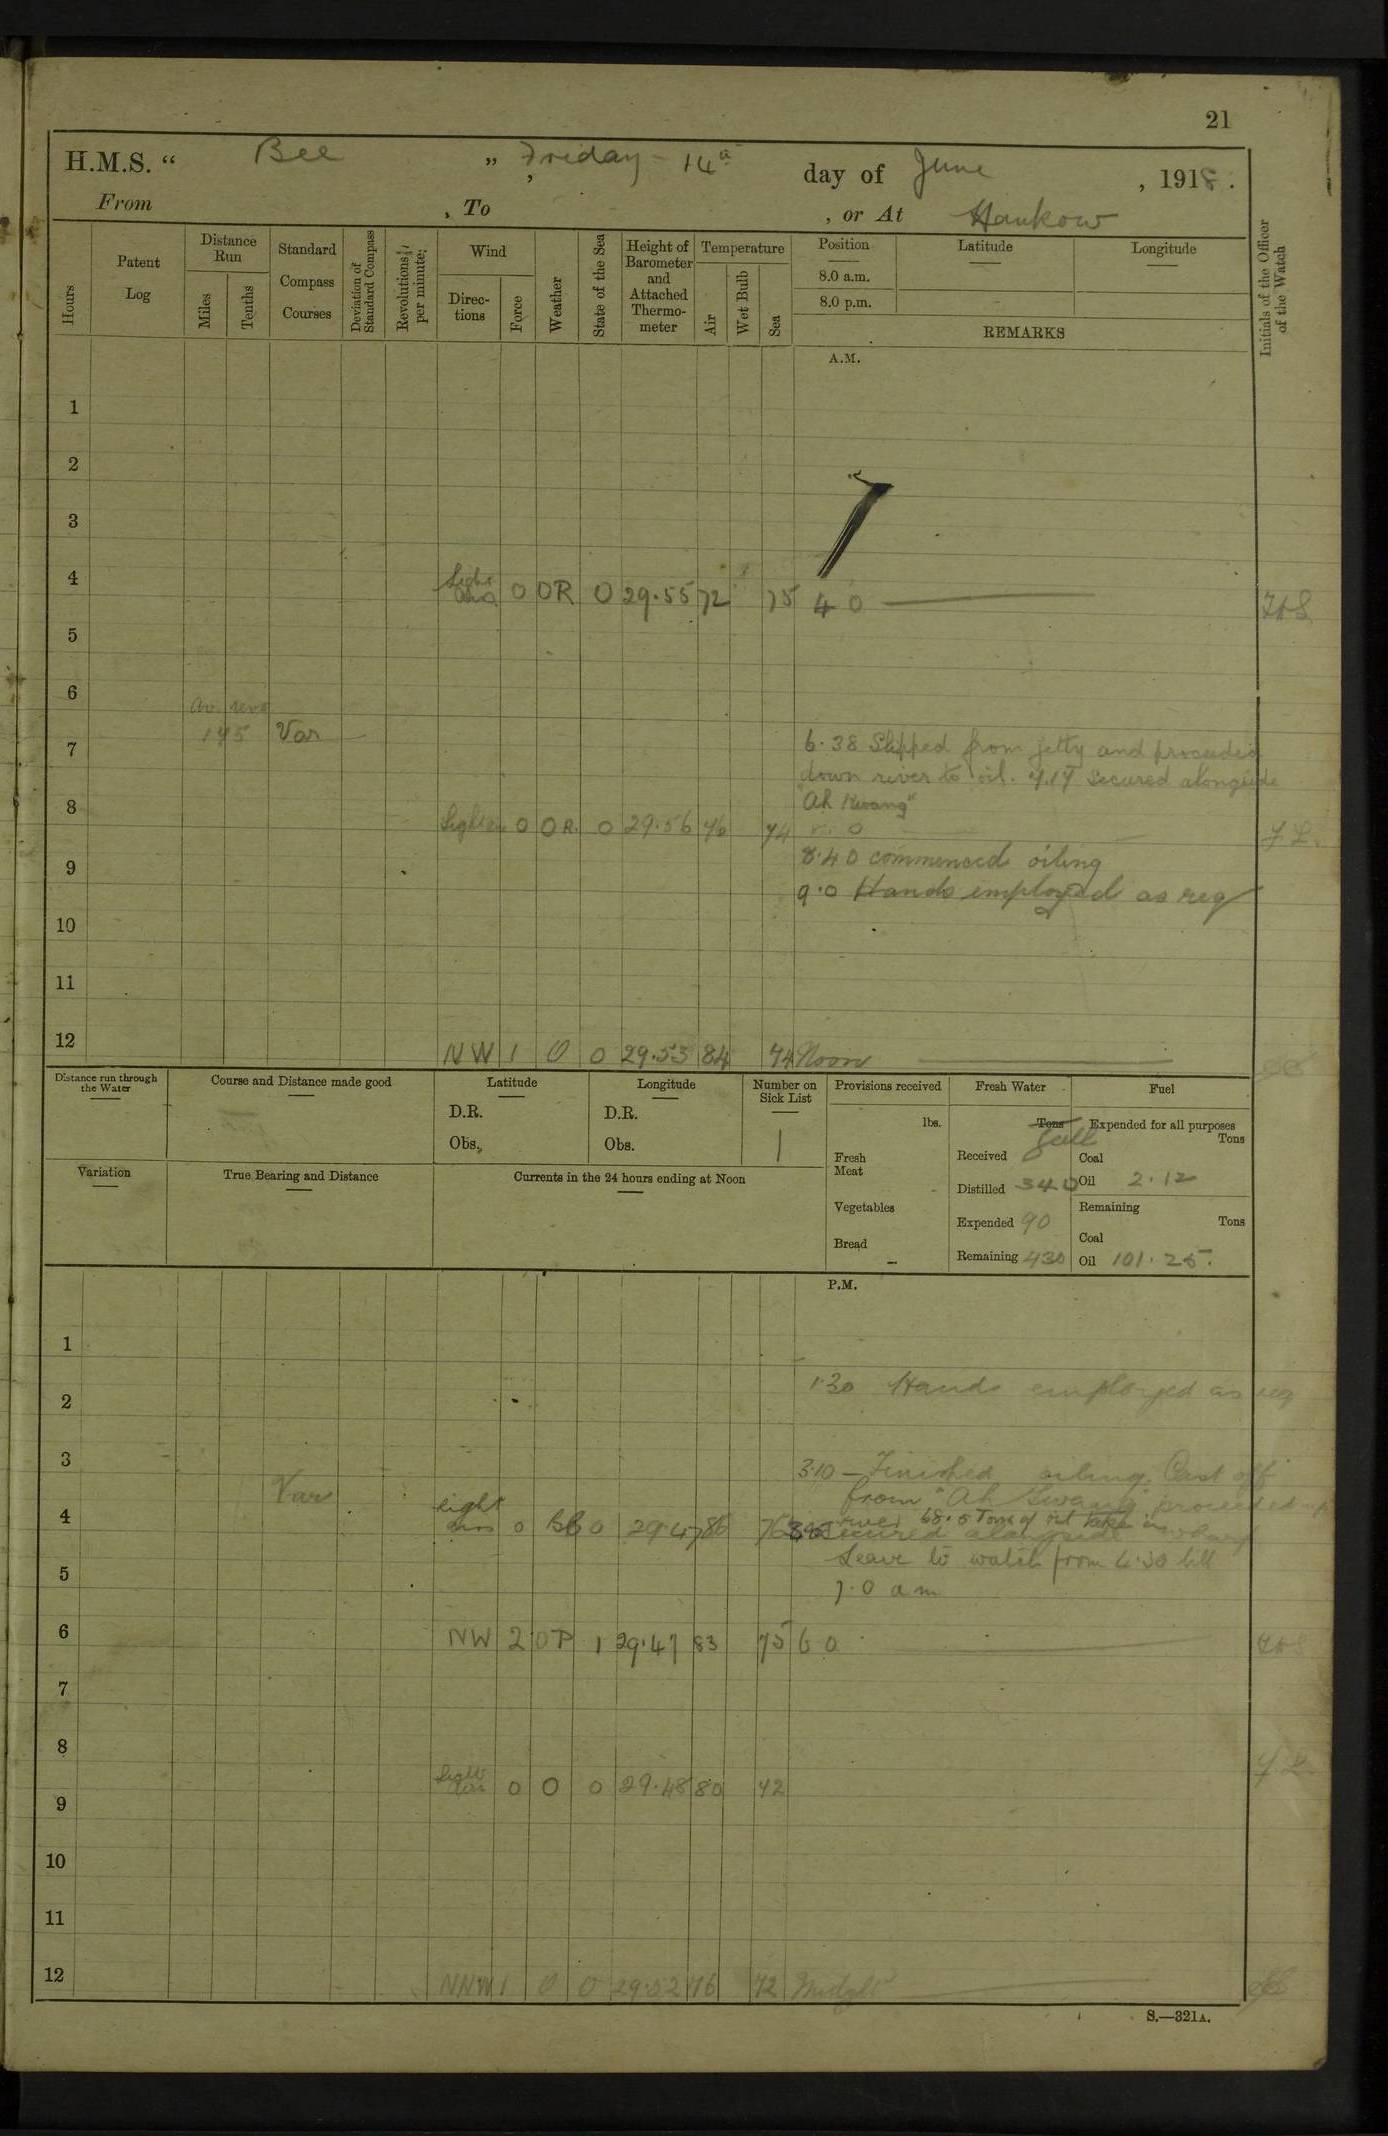 21
H.M.S. " Bee " Friday - 14th day of June , 1918.
From , To , or At Hankow
Hours
Patent Log
Distance Run
Miles
Tenths
Standard Compass Courses
Deviation of Standard Compass
Revolutions per minute
Wind
Directions
Force
Weather
State of the Sea
Height of Barometer and Attached Thermometer
Temperature
Air
Wet Bulb
Sea
Position
8.0 a.m.
8.0 p.m.
Latitude
Longitude
REMARKS
Initials of the Officer of the Watch
A.M.
1
2
3
4 Light airs 0 OR 0 29.55 72 75 4 0
5
6
Av. revs
7 Var 6.38 Slipped from jetty and proceeded
down river to oil. 7.17 Secured alongside
8 "Ah Kwang"
Light airs 0 OR. 0 29.56 76 74 0 F.L.
9 8.40 commenced oiling
9.0 Hands employed as req
10
11
12 NW 1 O 0 29.53 84 74 Noon
Distance run through the Water
Course and Distance made good
Latitude
D.R.
Obs.
Longitude
D.R.
Obs.
Number on Sick List
1
Provisions received
lbs.
Fresh Meat
Vegetables
Bread
Fresh Water
Tons Gall
Received
Distilled 340
Expended 90
Remaining 430
Fuel
Expended for all purposes
Tons
Coal
Oil 2.12
Remaining
Tons
Coal
Oil 101.25.
Variation
True Bearing and Distance
Currents in the 24 hours ending at Noon
P.M.
1
2 1.30 Hands employed as req
3 3.10 - Finished oiling. Cast off
Var from "Ah Kwang" proceeded up
4 river 68.5 Tons of oil taken in
light airs 0 BC 0 29.47 86 76 Secured alongside wharf
Leave to watch from 4.30 till
5 7.0 am
6 NW 2 OP 1 29.47 83 75 6 0
7
8 F.L.
Light airs 0 O 0 29.48 80 72
9
10
11
12 NNW 1 O 0 29.52 76 72 Midgt
S.—321A.